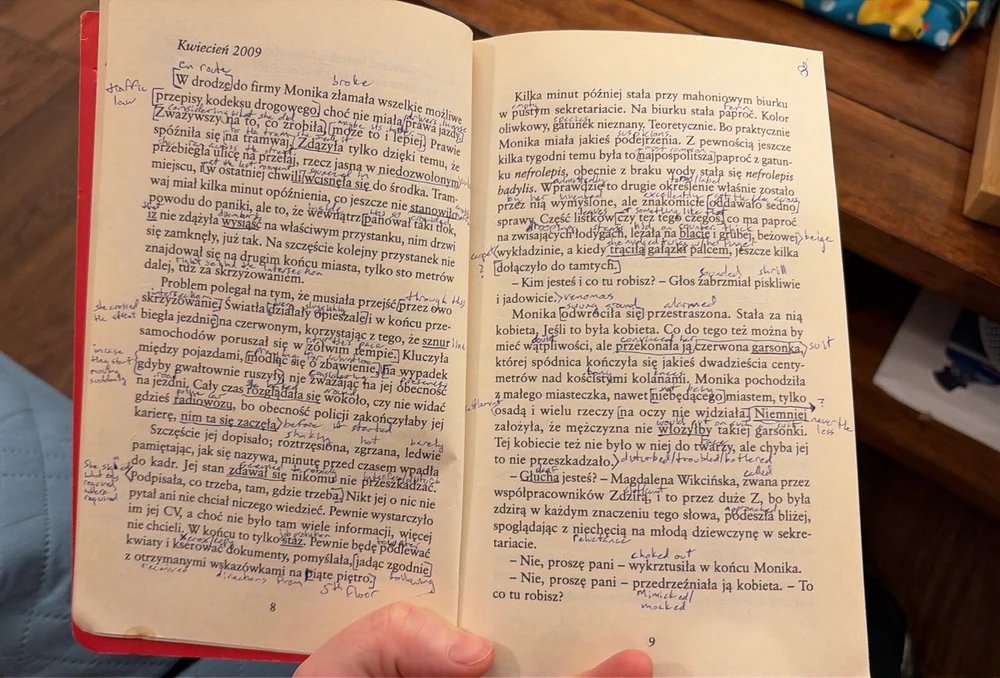 Kwiecień 2009
en route
broke
W drodze do firmy Monika złamała wszelkie możliwe
traffic
law
przepisy kodeksu drogowego, choć nie miała prawa jazdy.
Zważywszy na to, co zrobiła, może to i lepiej. Prawie
spóźniła się na tramwaj. Zdążyła tylko dzięki temu, że
przebiegła ulicę na przełaj, rzecz jasna w niedozwolonym
miejscu, i w ostatniej chwili wcisnęła się do środka. Tram-
waj miał kilka minut opóźnienia, co jeszcze nie stanowiło
powodu do paniki, ale to, że wewnątrz panował taki tłok,
iż nie zdążyła wysiąść na właściwym przystanku, nim drzwi
się zamknęły, już tak. Na szczęście kolejny przystanek nie
znajdował się na drugim końcu miasta, tylko sto metrów
dalej, tuż za skrzyżowaniem.
Problem polegał na tym, że musiała przejść przez owo
through this
skrzyżowanie. Światła działały opieszale i w końcu prze-
she crossed
the street
biegła jezdnię na czerwonym, korzystając z tego, że sznur
line
samochodów poruszał się w żółwim tempie. Kluczyła
między pojazdami, modląc się o zbawienie, na wypadek
in case
they start
moving
suddenly
gdyby gwałtownie ruszyły, nie zważając na jej obecność
na jezdni. Cały czas rozglądała się wokoło, czy nie widać
police car
gdzieś radiowozu, bo obecność policji zakończyłaby jej
karierę, nim ta się zaczęła.
before it started
Szczęście jej dopisało; roztrzęsiona, zgrzana, ledwie
shaking
hot
barely
pamiętając, jak się nazywa, minutę przed czasem wpadła
do kadr. Jej stan zdawał się nikomu nie przeszkadzać.
Podpisała, co trzeba, tam, gdzie trzeba. Nikt jej o nic nie
pytał ani nie chciał niczego wiedzieć. Pewnie wystarczyło
im jej CV, a choć nie było tam wiele informacji, więcej
nie chcieli. W końcu to tylko staż. Pewnie będę podlewać
kwiaty i kserować dokumenty, pomyślała, jadąc zgodnie
z otrzymanymi wskazówkami na piąte piętro.
received
directions from
5th floor
following
8
Kilka minut później stała przy mahoniowym biurku
w pustym sekretariacie. Na biurku stała paproć. Kolor
oliwkowy, gatunek nieznany. Teoretycznie. Bo praktycznie
Monika miała jakieś podejrzenia. Z pewnością jeszcze
kilka tygodni temu była to najpospolitsza paproć z gatun-
ku nefrolepis, obecnie z braku wody stała się nefrolepis
badylis. Wprawdzie to drugie określenie właśnie zostało
przez nią wymyślone, ale znakomicie oddawało sedno
sprawy. Część listków czy tez tego czegoś, co ma paproć
na zwisających łodygach, leżała na blacie i grubej, beżowej
beige
carpet
?
wykładzinie, a kiedy trąciła gałązki palcem, jeszcze kilka
dołączyło do tamtych.
sounded shrill
– Kim jesteś i co tu robisz? – Głos zabrzmiał piskliwie
i jadowicie.
venomas
alarmed
Monika odwróciła się przestraszona. Stała za nią
kobieta. Jeśli to była kobieta. Co do tego też można by
mieć wątpliwości, ale przekonała ją czerwona garsonka,
suit
której spódnica kończyła się jakieś dwadzieścia centy-
metrów nad kościstymi kolanami. Monika pochodziła
z małego miasteczka, nawet niebędącego miastem, tylko
settlement
osadą i wielu rzeczy na oczy nie widziała. Niemniej
?
neverthe
less
założyła, że mężczyzna nie włożyłby takiej garsonki.
Tej kobiecie też nie było w niej do twarzy, ale chyba jej
to nie przeszkadzało.
disturbed/troubled/bothered
deaf
called
– Głucha jesteś? – Magdalena Wikcińska, zwana przez
współpracowników Zdzirą, i to przez duże Z, bo była
approached
zdzirą w każdym znaczeniu tego słowa, podeszła bliżej,
spoglądając z niechęcią na młodą dziewczynę w sekre-
reluctance
tariacie.
choked out
– Nie, proszę pani – wykrztusiła w końcu Monika.
– Nie, proszę pani – przedrzeźniała ją kobieta. – To
Mimicked/
mocked
co tu robisz?
9